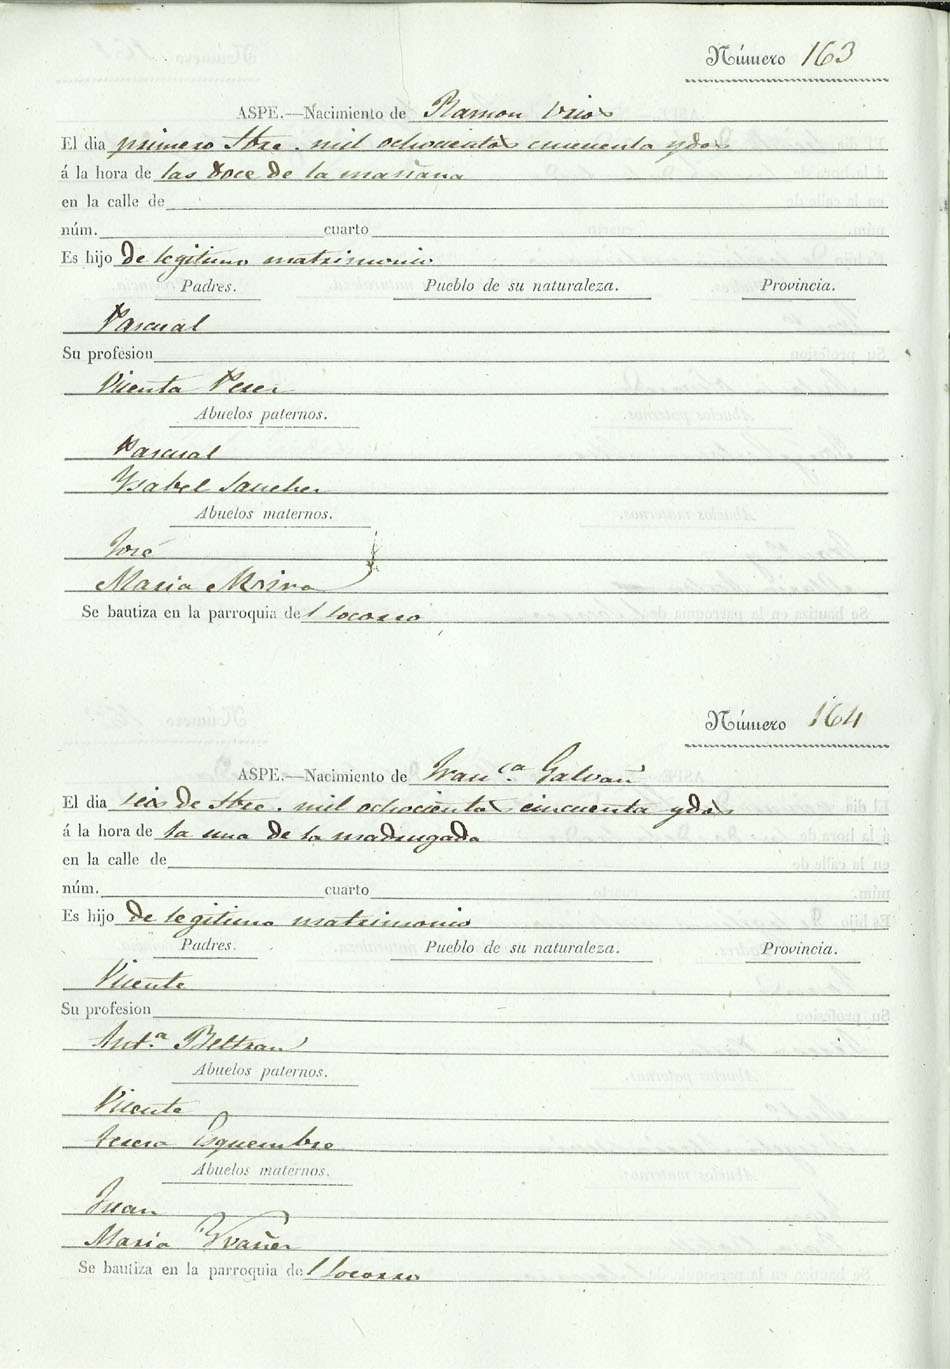 Número 163
ASPE.—Nacimiento de Ramon Urios
El dia primero Stre. mil ochocientos cincuenta y dos
á la hora de las doce de la mañana
en la calle de
núm. cuarto
Es hijo de legitimo matrimonio
Padres. Pueblo de su naturaleza. Provincia.
Pascual
Su profesion
Vicenta Perer
Abuelos paternos.
Pascual
Ysabel Sancher
Abuelos maternos.
José
Maria Mrira
Se bautiza en la parroquia del Socorro
Número 164
ASPE.—Nacimiento de Fran.ca Galvañ
El dia seis de Stre. mil ochocientos cincuenta y dos
á la hora de la una de la madrugada
en la calle de
núm. cuarto
Es hijo de legitimo matrimonio
Padres. Pueblo de su naturaleza. Provincia.
Vicente
Su profesion
Ant.a Beltran
Abuelos paternos.
Vicente
Teresa Esquembre
Abuelos maternos.
Juan
Maria Yvañer
Se bautiza en la parroquia del Socorro